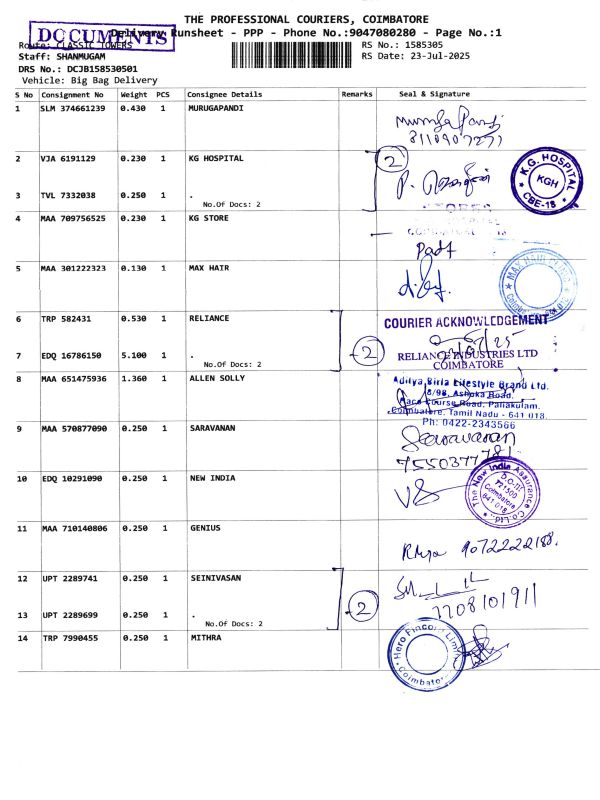 THE PROFESSIONAL COURIERS, COIMBATORE
DOCUMENTS
Delivery Runsheet - PPP - Phone No.:9047080280 - Page No.:1
Route: CLASSIC TOWERS
RS No.: 1585305
Staff: SHANMUGAM
RS Date: 23-Jul-2025
DRS No.: DCJB158530501
Vehicle: Big Bag Delivery
S No Consignment No Weight PCS Consignee Details Remarks Seal & Signature
1 SLM 374661239 0.430 1 MURUGAPANDI
2 VJA 6191129 0.230 1 KG HOSPITAL
2
K.G. HOSPITAL KGH CBE-18
3 TVL 7332038 0.250 1 .
No.Of Docs: 2
4 MAA 709756525 0.230 1 KG STORE
5 MAA 301222323 0.130 1 MAX HAIR
MAX HAIR CLINIC
6 TRP 582431 0.530 1 RELIANCE
COURIER ACKNOWLEDGEMENT
7 EDQ 16786150 5.100 1 .
No.Of Docs: 2
2
RELIANCE INDUSTRIES LTD
COIMBATORE
8 MAA 651475936 1.360 1 ALLEN SOLLY
Aditya Birla Lifestyle Brand Ltd.
8/98, Ashoka Road,
Race Course Road, Pallakulam.
Coimbatore, Tamil Nadu - 641 018.
Ph: 0422-2343566
9 MAA 570877090 0.250 1 SARAVANAN
Saravanan
7550377781
10 EDQ 10291090 0.250 1 NEW INDIA
The New India Assurance Co. Ltd.
Coimbatore
641 018
11 MAA 710140806 0.250 1 GENIUS
9072222188.
12 UPT 2289741 0.250 1 SEINIVASAN
13 UPT 2289699 0.250 1 .
No.Of Docs: 2
2
7708101911
14 TRP 7990455 0.250 1 MITHRA
Hero Fincorp Limi
Coimbato